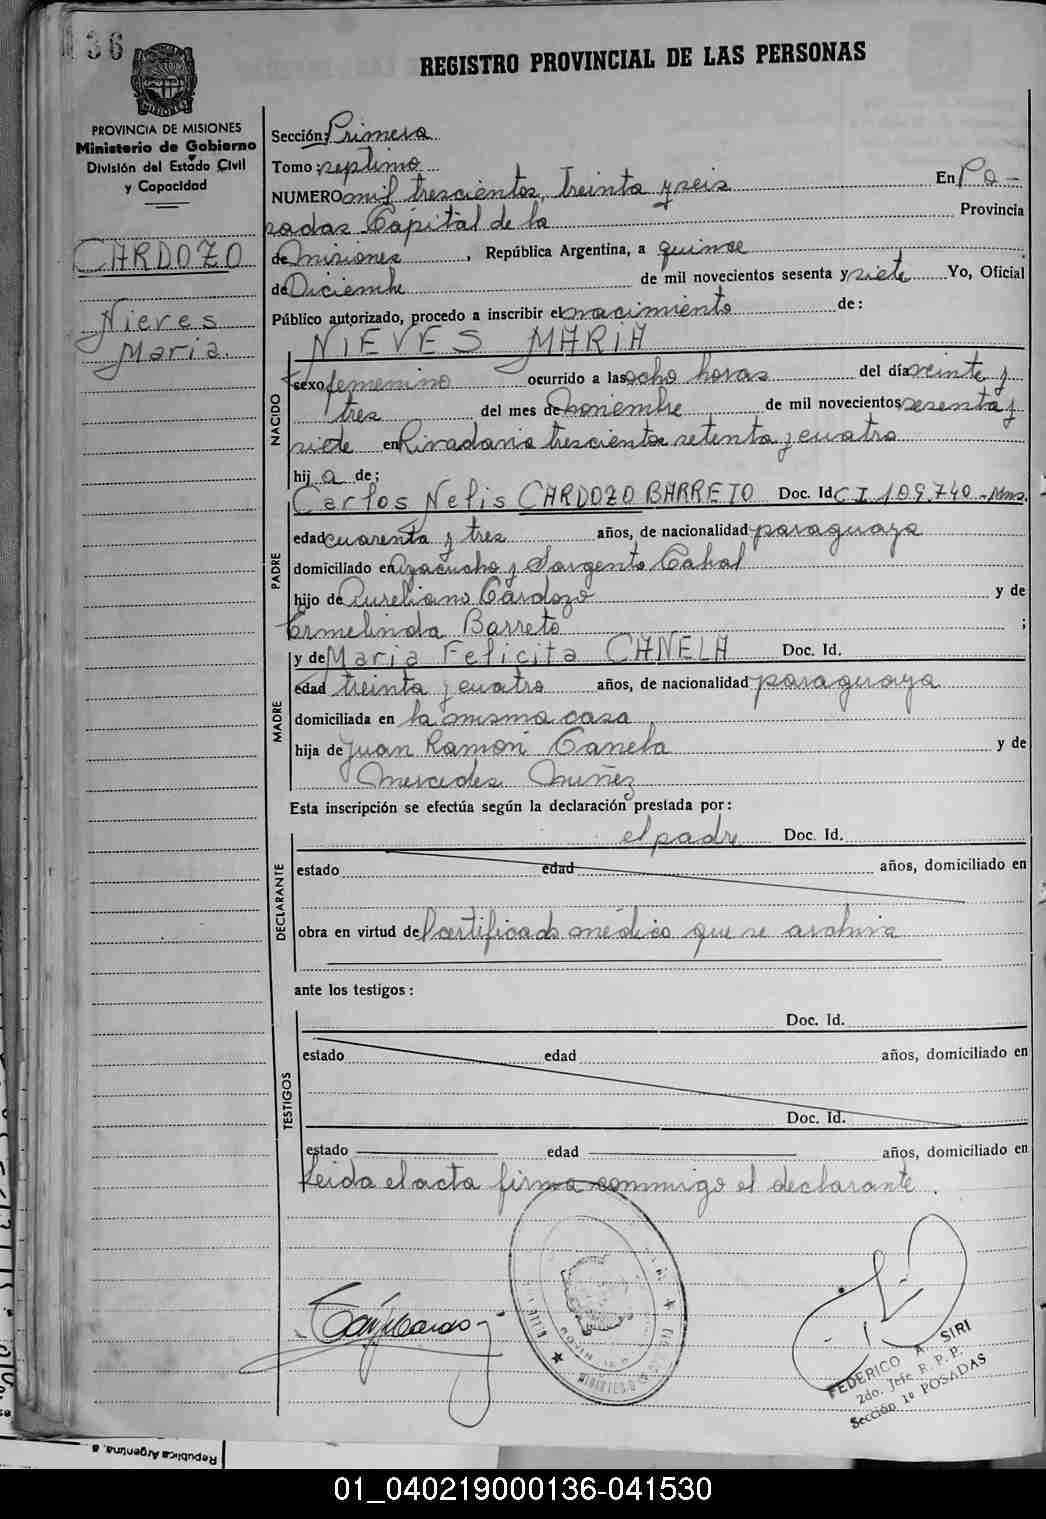 136
REGISTRO PROVINCIAL DE LAS PERSONAS
MISIONES
PROVINCIA DE MISIONES
Ministerio de Gobierno
División del Estado Civil
y Capacidad
CARDOZO
Nieves
Maria.
Sección: Primera
Tomo: septimo
NUMERO mil trescientos, treinta y seis En Po-
sadas Capital de la Provincia
de Misiones, República Argentina, a quince
de Diciembre de mil novecientos sesenta y siete Yo, Oficial
Público autorizado, procedo a inscribir el nacimiento de:
NIEVES MARIA
NACIDO
sexo femenino ocurrido a las ocho horas del día veinte y
tres del mes de Noviembre de mil novecientos sesenta y
siete en Rivadavia trescientos setenta y cuatro
hij a de;
Carlos Nelis CARDOZO BARRETO Doc. Id. C I 109.740 - Mns.
PADRE
edad cuarenta y tres años, de nacionalidad paraguaya
domiciliado en Ayacucho y Sargento Cabral
hijo de Aureliano Cardozo y de
Ermelinda Barreto ;
y de Maria Felicita CANELA Doc. Id.
MADRE
edad treinta y cuatro años, de nacionalidad paraguaya
domiciliada en la misma casa
hija de Juan Ramon Canela y de
Mercedes Nuñez
Esta inscripción se efectúa según la declaración prestada por:
el padre Doc. Id.
DECLARANTE
estado edad años, domiciliado en
obra en virtud de Certificado médico que se archiva
ante los testigos:
TESTIGOS
Doc. Id.
estado edad años, domiciliado en
Doc. Id.
estado edad años, domiciliado en
Leida el acta firma conmigo el declarante.
FEDERICO A. SIRI
2do. Jefe R. P. P.
Sección 1º POSADAS
República Argentina, a
01_040219000136-041530